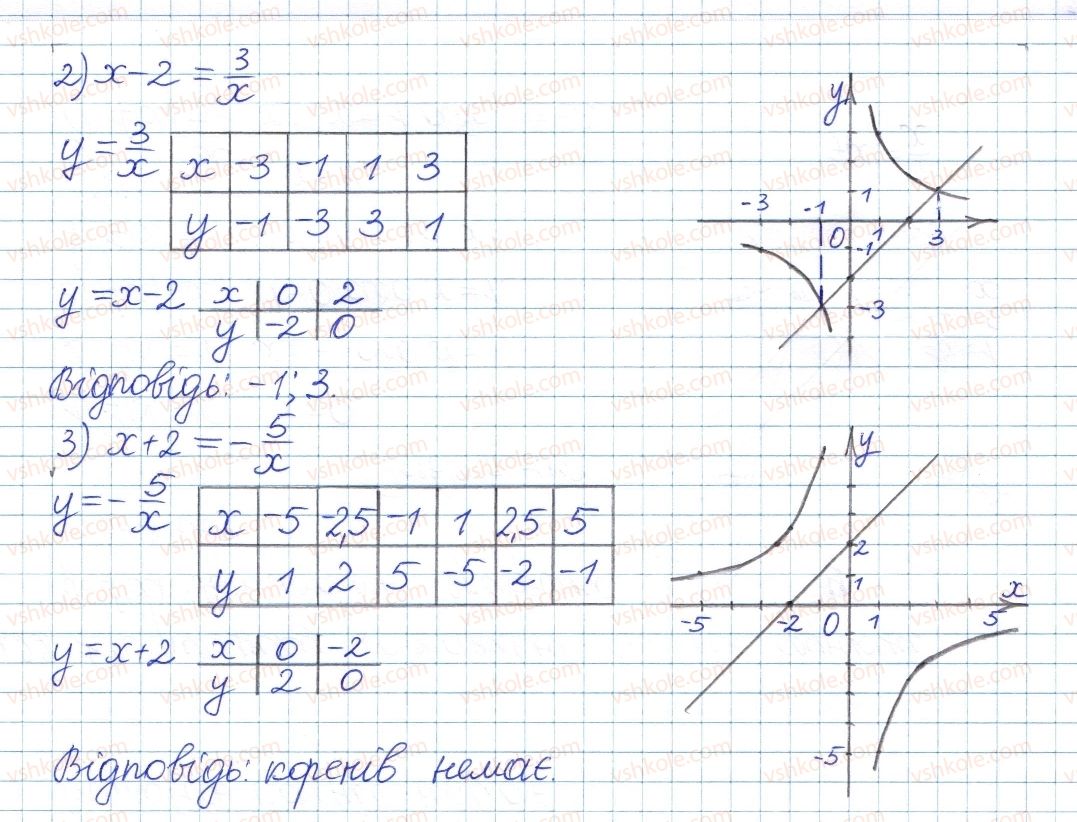 2) x-2 = 3/x
y = 3/x
x -3 -1 1 3
y -1 -3 3 1
y = x-2
x 0 2
y -2 0
Відповідь: -1; 3.
y
-3 -1 1
0 1 3
-1
-3
3) x+2 = -5/x
y = -5/x
x -5 -2,5 -1 1 2,5 5
y 1 2 5 -5 -2 -1
y = x+2
x 0 -2
y 2 0
Відповідь: коренів немає.
y
2
1
x
-5 -2 0 1 5
-5
vshkole.com